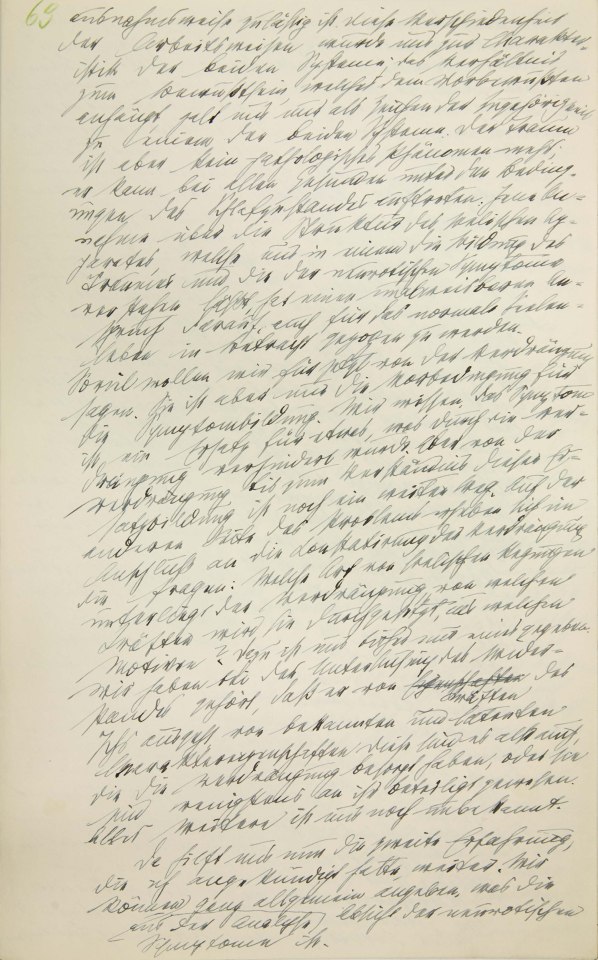 69
ausnahmsweise zulässig ist diese Verschiedenheit
der Arbeitsweisen würde uns zur Charakter-
istik der beiden Systeme das Verhältnis
zum Bewußtsein, welches dem Vorbewußten
anhängt, galt uns nur als Zeichen der Zugehörigkeit
zu einem der beiden Systeme. Der Traum
ist aber kein pathologisches Phänomen mehr.
er kann bei allen Gesunden unter den Beding-
ungen des Schlafzustandes auftreten. Jene An-
nahme über die Struktur des seelischen Ap-
parates, welche uns in einem die Bildung des
Traumes und die der neurotischen Symptome
verstehen läßt, hat einen unabweisbaren An-
spruch darauf, auch für das normale Seelen-
leben in Betracht gezogen zu werden.
Soviel wollen wir für jetzt von der Verdrängung
sagen. Sie ist aber nur die Vorbedingung für
die Symptombildung. Wir wissen, das Symptom
ist ein Ersatz für etwas, was durch die Ver-
drängung verhindert wurde. Aber von der
Verdrängung bis zum Verständnis dieser Er-
satzbildung ist noch ein weiter Weg. Auf der
anderen Seite des Problems erheben sich im
Anschluß an die Konstatirung der Verdrängung
die Fragen: Welche Art von seelischen Regungen
unterliegt der Verdrängung, von welchen
Kräften wird sie durchgesetzt, aus welchen
Motiven? Dazu ist uns bisher nur eines gegeben.
Wir haben bei der Untersuchung des Wider-
standes gehört, daß er von Kräften des
Ichs ausgeht, von bekannten und latenten
Charaktereigenschaften. Diese sind es also auch,
die die Verdrängung besorgt haben, oder sie
sind wenigstens an ihr beteiligt gewesen.
Alles Weitere ist uns noch unbekannt.
Da hilft uns nun die zweite Erfahrung,
die ich angekündigt hatte, weiter. Wir
können ganz allgemein angeben, was die
aus der Analyse Absicht der neurotischen
Symptome ist.